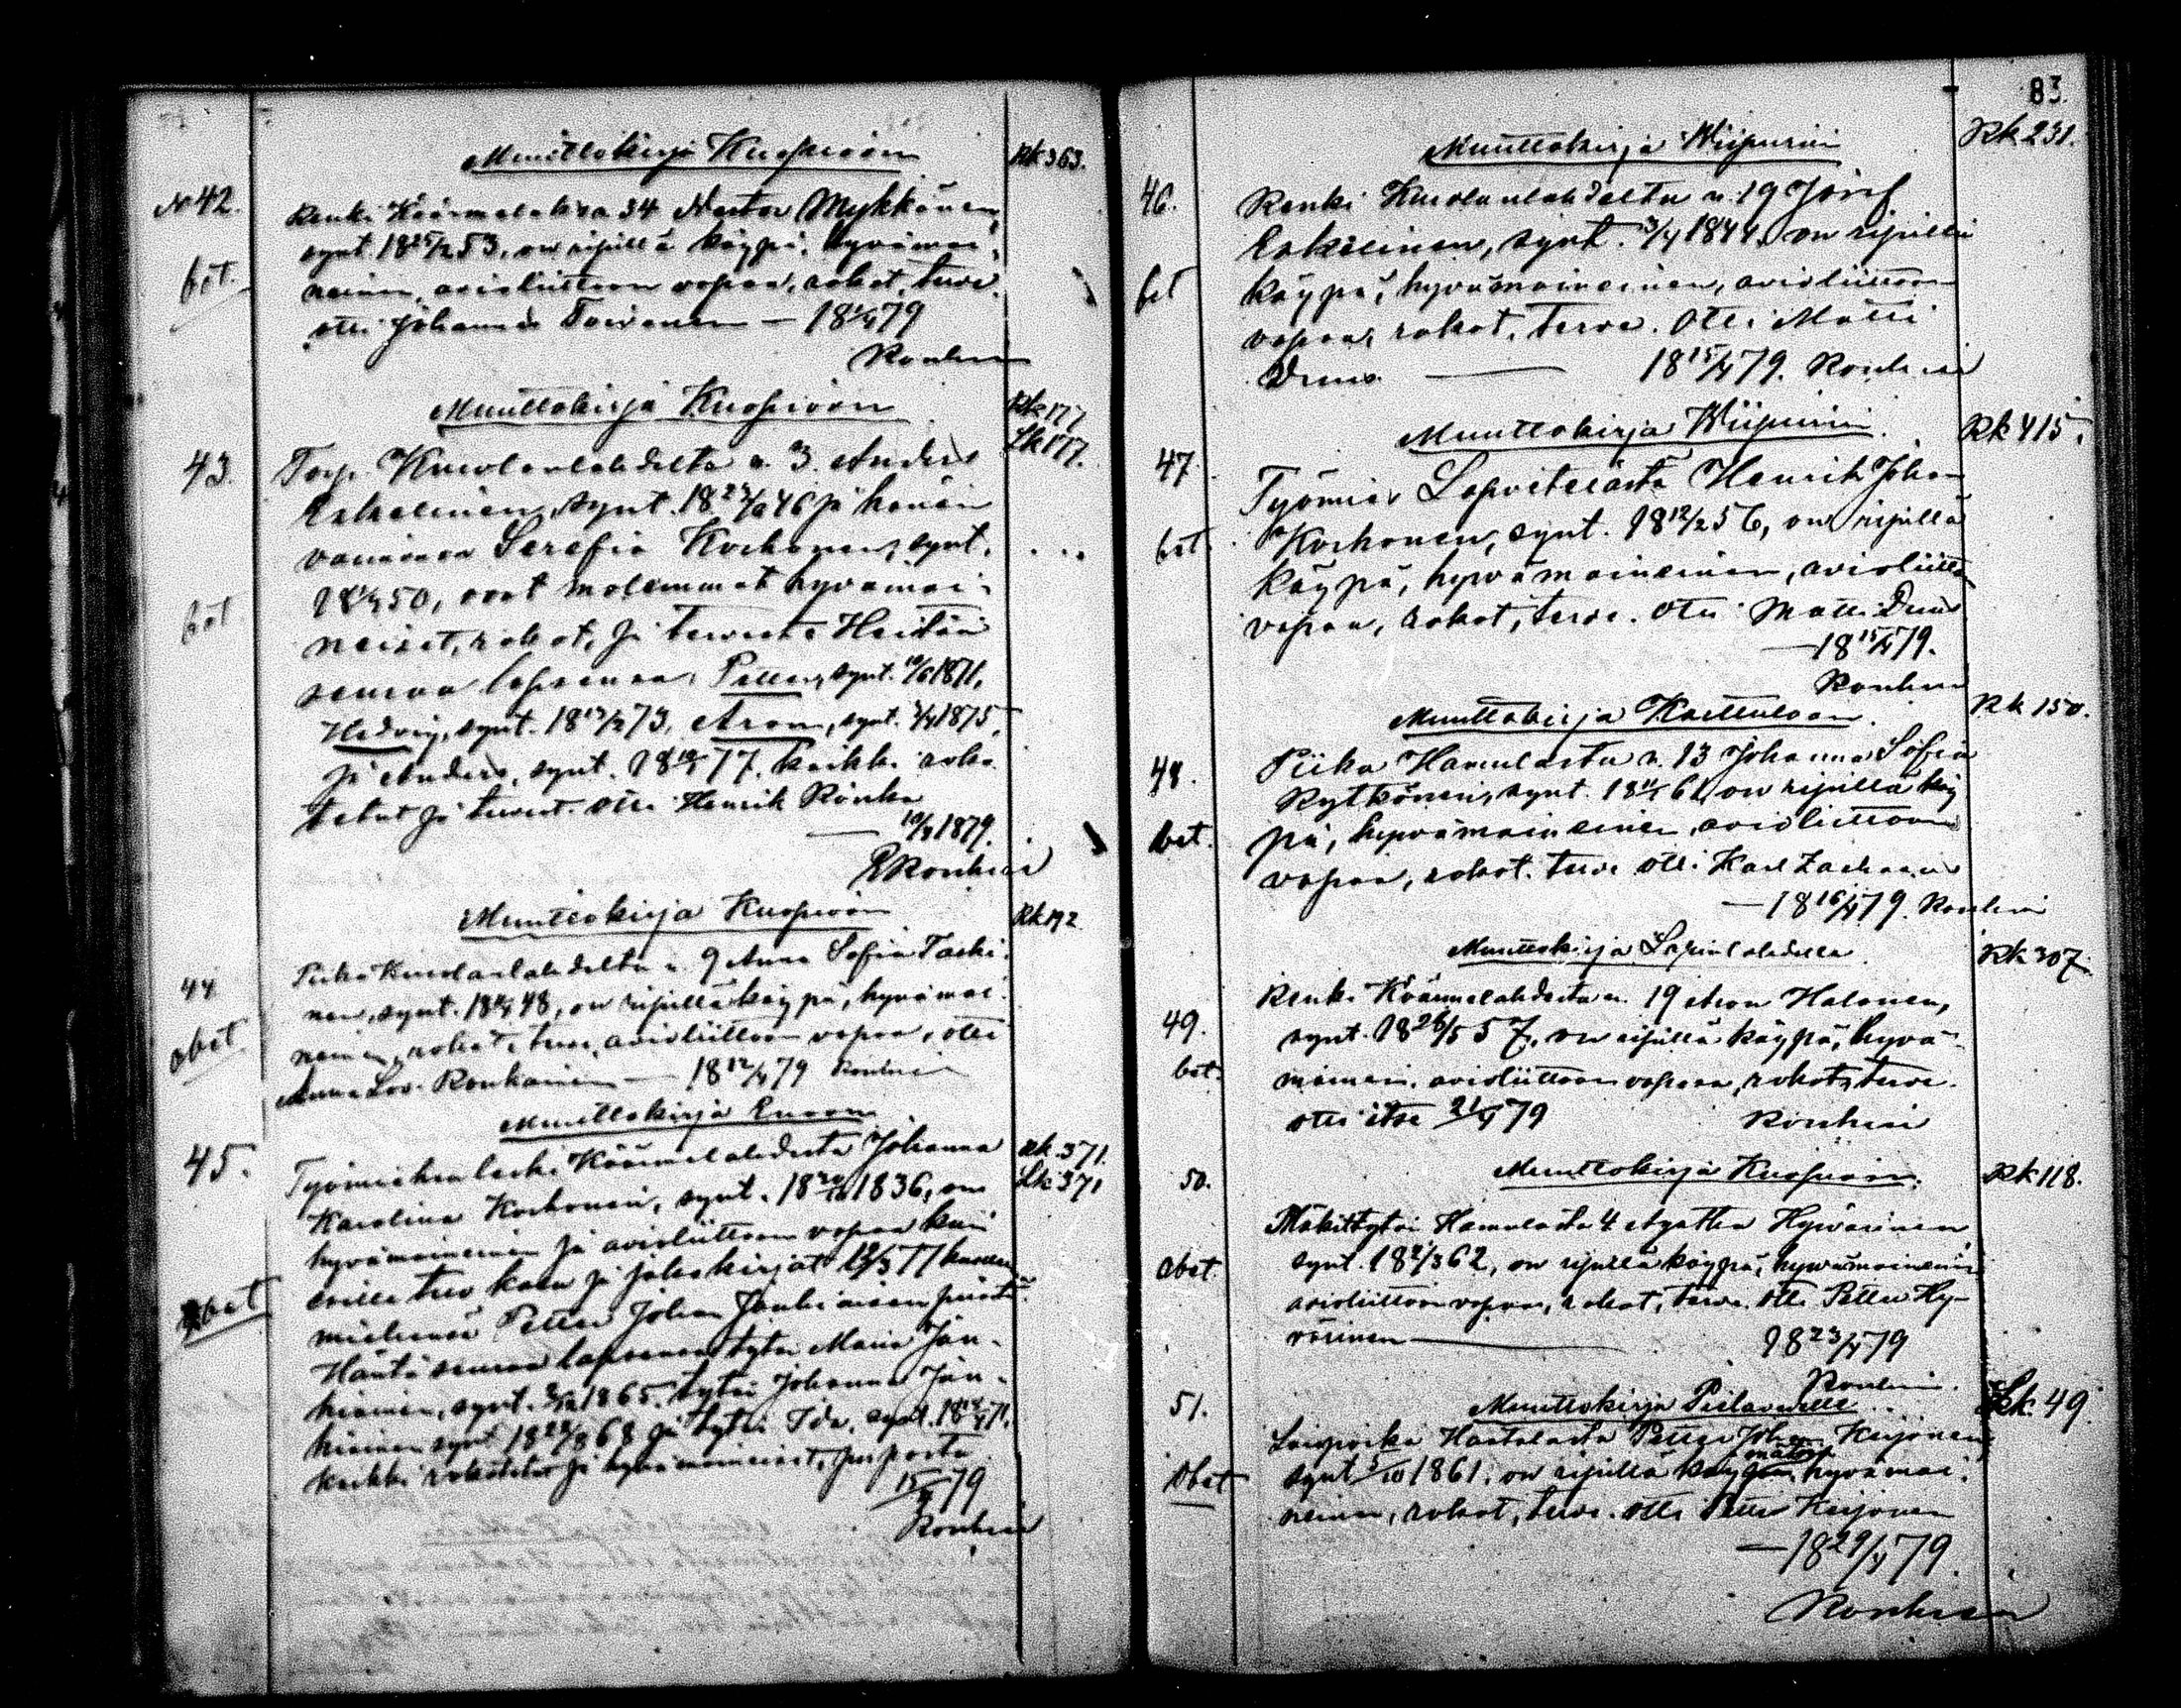 Muuttokirja Kuopioon
Rk 363.
No 42.
Renki Käärmelahti 34 Nestor Mykkänen,
synt. 18 25/2 53, on ripillä käypä, hyvämai-
bet.
neinen, avioliittoon vapaa, rokot, terve.
otti Johannes Toivanen — 18 /4 79
Ronkain
Muuttokirja Kuopioon
Rk 177
Lk 177.
43.
Torp. Kuolanlahdelta n. 3. Anders
Eskelinen, synt. 18 46 ja hänen
vaimonsa Serafia Korhonen, synt.
18 50, ovat molemmat hyvämai-
bet
neiset, rokot, ja terveitä Heidän
seuraa lapsensa: Petter, synt. 10/6 1871,
Hedvig, synt. 18 73, Aron, synt. 1875,
ja Anders, synt. 18 77. kaikki roko
tetut ja terveet. otti Henrik Rönkä
— 10/4 1879.
Ronkain
Muuttokirja Kuopioon
Rk 192
44
Piika Kuolanlahdelta n. 9 Anna Sofia Taski-
nen, synt. 18 48, on ripillä käypä, hyvämai-
obet
neinen, rokot, terve, avioliittoon vapaa, otti
Anna Lov. Ronkainen — 18 12/4 79 Ronkain
Muuttokirja Enoon
45.
Työmiehen leski Käärmelahdesta Johanna
Rk. 371.
Karolina Korhonen, synt. 18 1836, on
Lk 371
hyvämaineinen ja avioliittoon vapaa kuin
esille tuo kuu ja jakokirjat 12/3 77 kuolleen
obet
miehensä Petter Johan Jänkiäisen pesästä.
Häntä seuraa lapsensa tytär Maria Jän-
kiäinen, synt. 1865. tytär Johanna Jän-
kiäinen synt 18 68 ja tytär Ida, synt. 18 71.
kaikki rokotetut ja hyvämaineiset,
15/4 79
Ronkain
83.
Muuttokirja Wiipuriin
Rk 231.
46.
Renki Kuolanlahdelta n. 19 Josef
Eskelinen, synt. 3/4 1844, on ripillä
bet
käypä, hyvämaineinen, avioliittoon
vapaa, rokot, terve. Otti Matti
Drus — 18 15/4 79. Ronkain
Muuttokirja Wiipuriin.
Rk 415.
47.
Työmies Lapvetelästä Henrik Johan
bet.
Korhonen, synt. 18 12/2 56, on ripillä
käypä, hyvämaineinen, avioliitto
vapaa, rokot, terve. Otti Matti Drus
— 18 15/4 79.
Ronkain
Muuttokirja Karttulaan.
Rk 150.
48.
Piika Hamulasta n. 13 Johanna Sofia
Rytkönen, synt. 18 61, on ripillä käy
bet.
pä, hyvämaineinen, avioliittoon
vapaa, rokot. terve otti Karl
— 18 16/4 79. Ronkain
Muuttokirja Lapinlahdelle.
Rk 307.
Renki Käärmelahdesta n. 19 Aron Halonen,
49.
synt. 18 26/5 57, on ripillä käypä, hyvä-
bet.
mainen. avioliittoon vapaa, rokot, terve.
otti itse 21/4 79 Ronkain
Muuttokirja Kuopioon.
Rk 118.
50.
Mäkitytär Hamulasta 4 Agatha Hyvärinen
obet.
synt. 18 /3 62, on ripillä käypä, hyvämaineinen
avioliittoon vapaa, rokot, terve. otti Petter Hy-
värinen — 18 23/4 79
Ronkain.
51.
Muuttokirja Pielavedelle.
Lk. 49.
Loispoika Haatalasta Petter Johan Keijonen,
obet
synt. 3/10 1861, on ripillä käypä, hyvämai-
neinen, rokot, terve. otti Petter Keijonen
— 18 29/4 79.
Ronkain